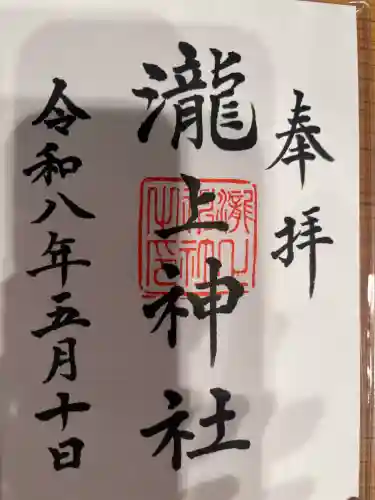 奉拝
瀧上神社
令和八年五月十日